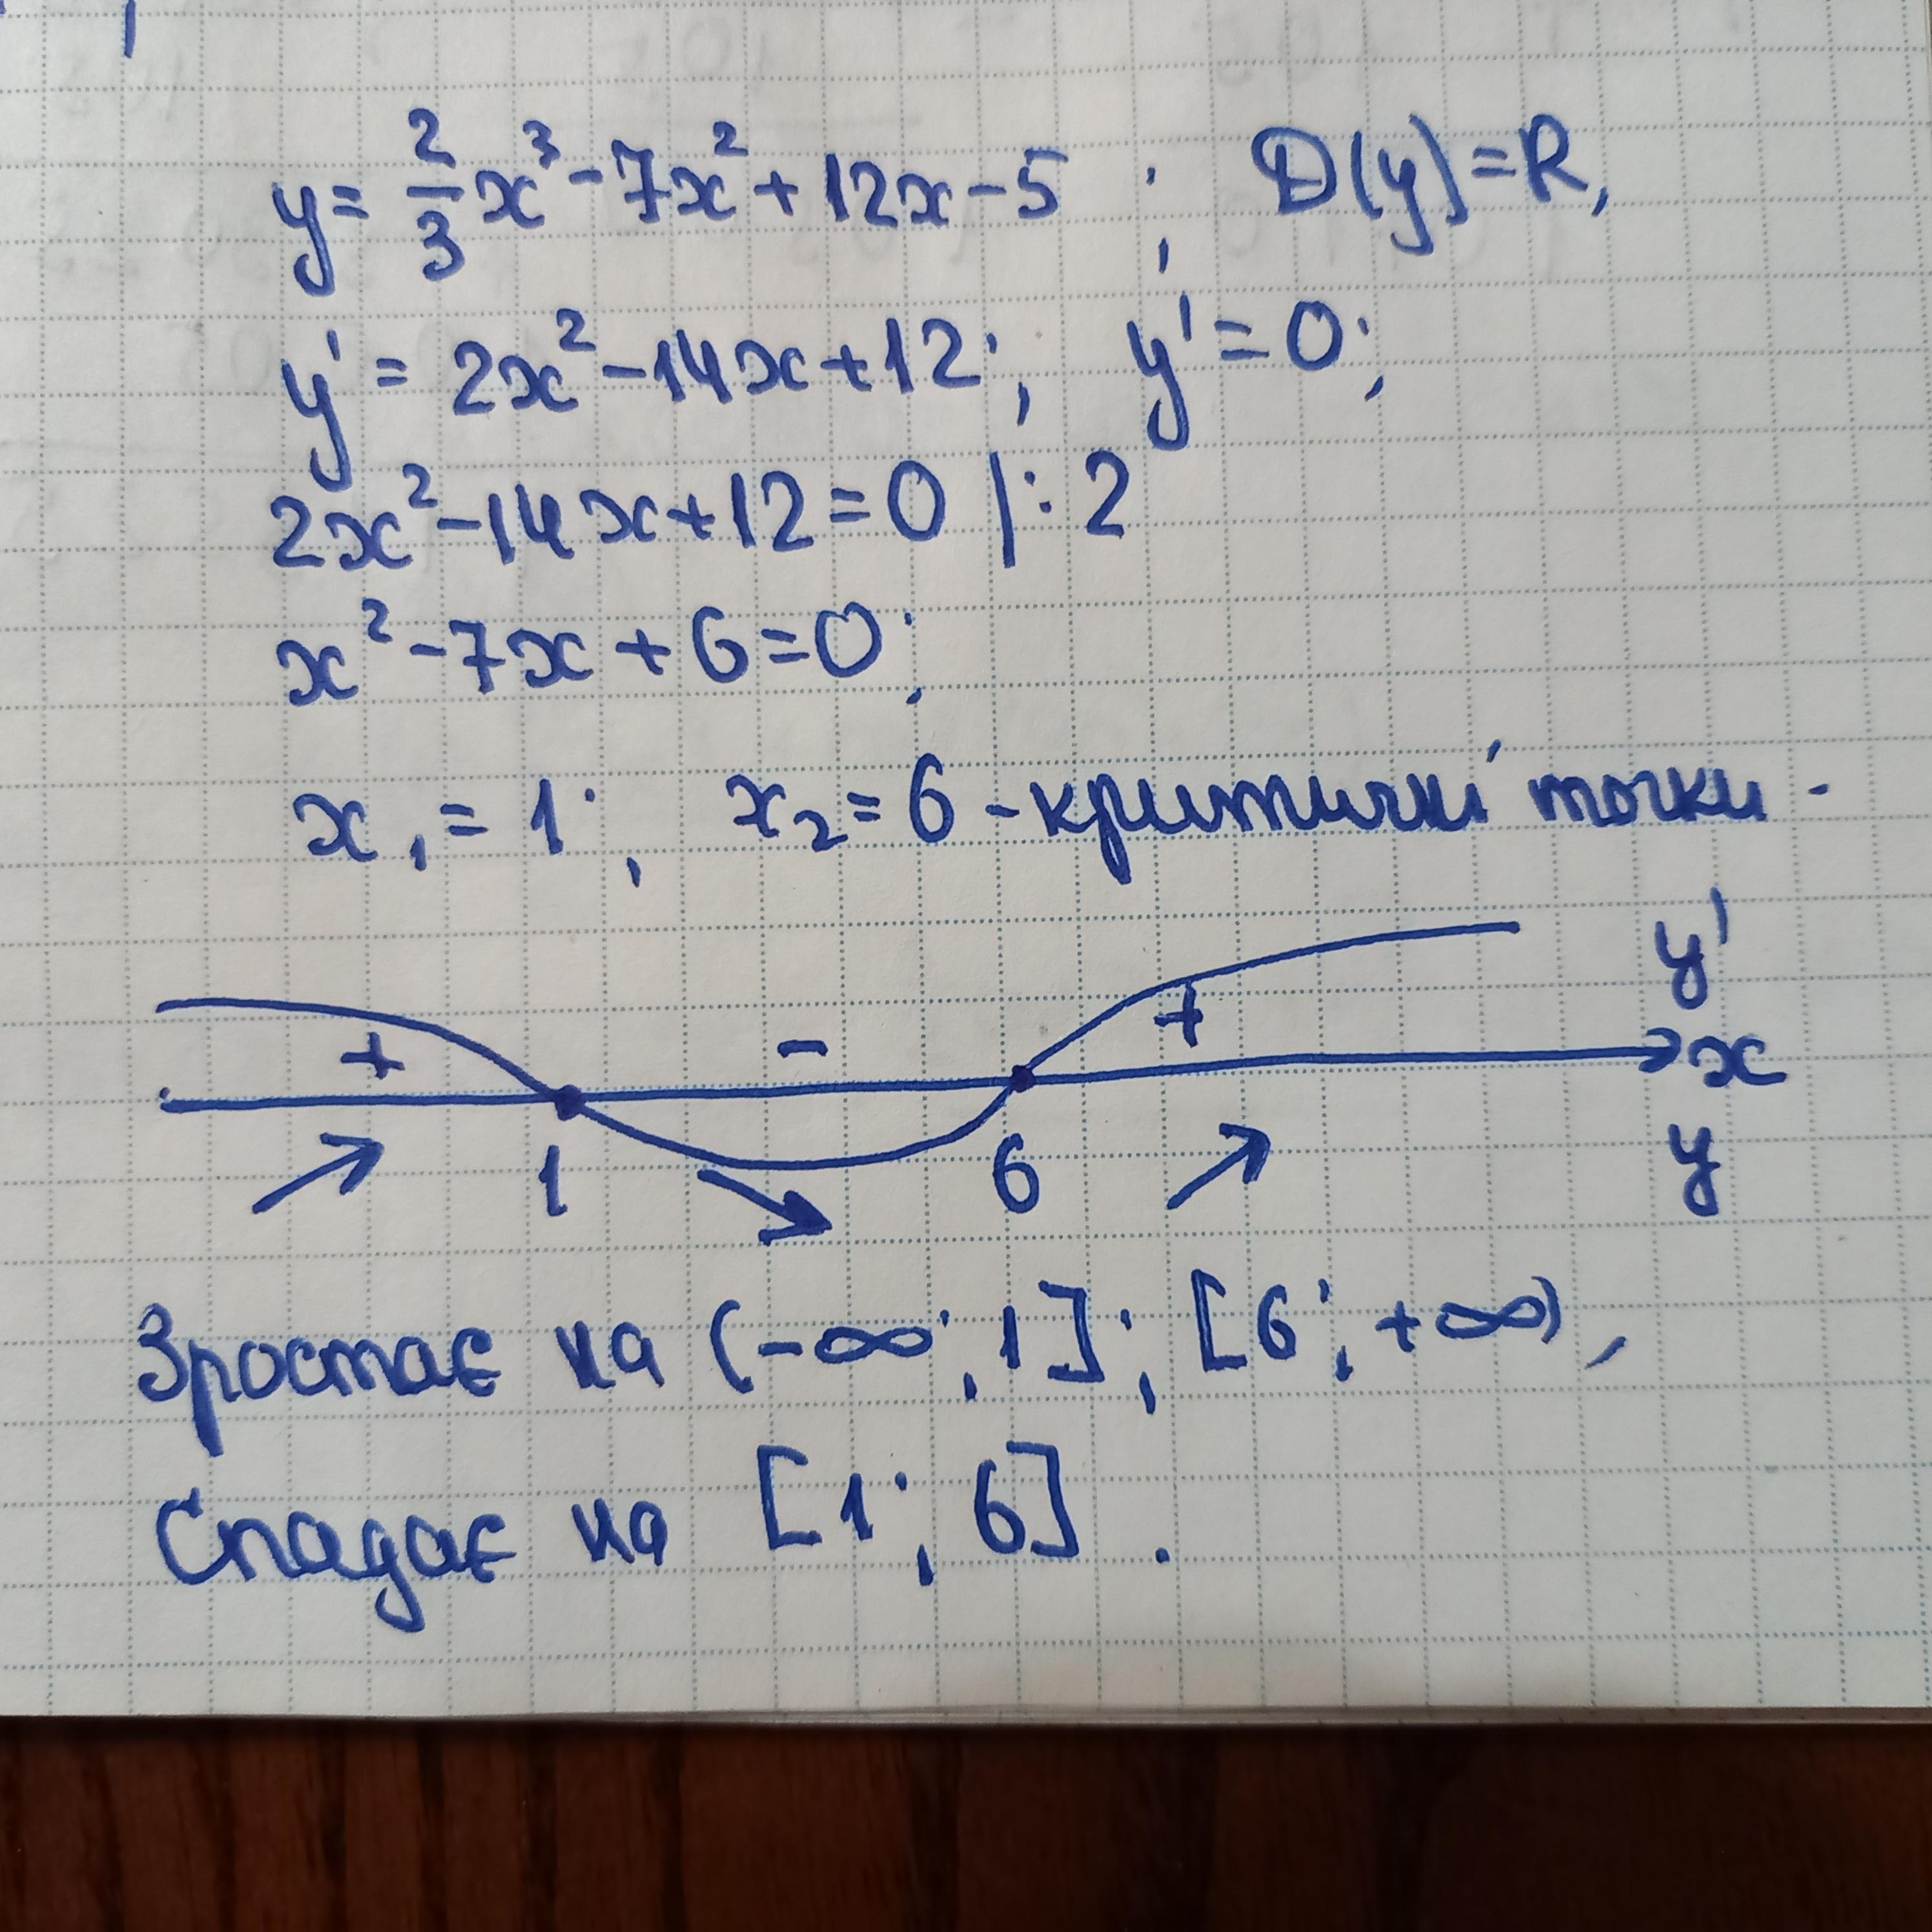 y = 2/3 x³ - 7x² + 12x - 5 ; D(y) = R,
y' = 2x² - 14x + 12; y' = 0;
2x² - 14x + 12 = 0 |: 2
x² - 7x + 6 = 0;
x₁ = 1; x₂ = 6 - критичні точки.
y'
+ - +
x
1 6 y
Зростає на (-∞; 1]; [6; +∞),
Спадає на [1; 6].